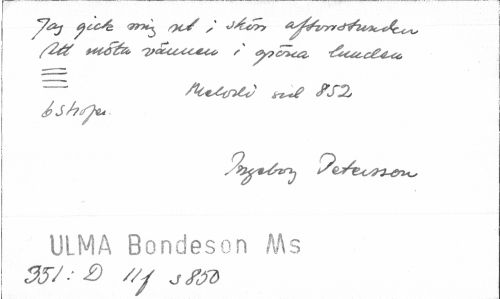 Jag gick mig ut i skön aftonstunden
Att möta vännen i gröna lunden
6 strofer.
Melodi sid 852
Ingeborg Petersson
ULMA Bondeson Ms
351:D 11f s 850